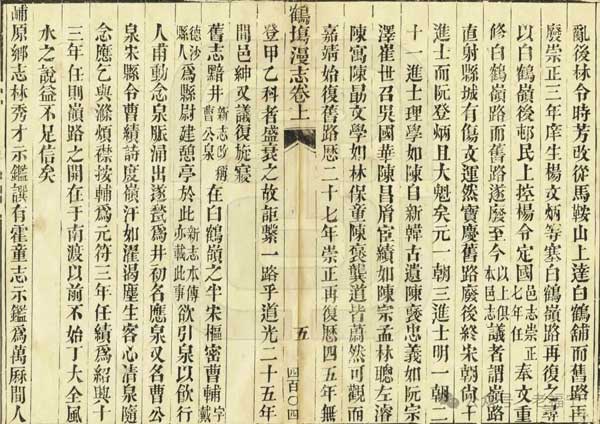 亂後林令時芳改從馬鞍山上達白鶴舖而舊路再
廢崇正三年庠生楊文炳等塞白鶴嶺路再復之尋
以白鶴嶺後邨民上控楊令定國邑志崇正七年任奉文重
修白鶴嶺路而舊路遂廢至今以上俱本邑志議者謂嶺路
直射縣城有傷文運然寶慶舊路廢後終宋朝尚十
進士而阮登炳且大魁矣元一朝三進士明一朝二
十一進士理學如陳自新韓古遺陳褒忠義如阮宗
澤崔世召吳國華陳昌胤宦績如陳宗孟林聰左濬
陳寓陳勗文學如林保童陳褒龔道皆蔚然可觀而
嘉靖始復舊路歷二十七年崇正再復歷四五年無
鶴塲漫志卷上
五
四百〇四
登甲乙科者盛衰之故詎繫一路乎道光二十五年
間邑紳又議復旋寢
舊志黯井新志改稱曹公泉在白鶴嶺之半宋樞密曹輔字載
德沙縣人為縣尉建憩亭於此新志本傳亦載此事欲引泉以飲行
人甫動念泉脈涌出遂甃為井初名應泉又名曹公
泉宋縣令曹績詩度嶺汗如濯渴塵生客心清泉隨
念應乞與滌煩襟按輔為元符三年任績為紹興十
三年任則嶺路之開在于南渡以前不始丁大全風
水之說益不足信矣
峬原鄉志林秀才示鑑譔有霍童志示鑑為萬厤間人